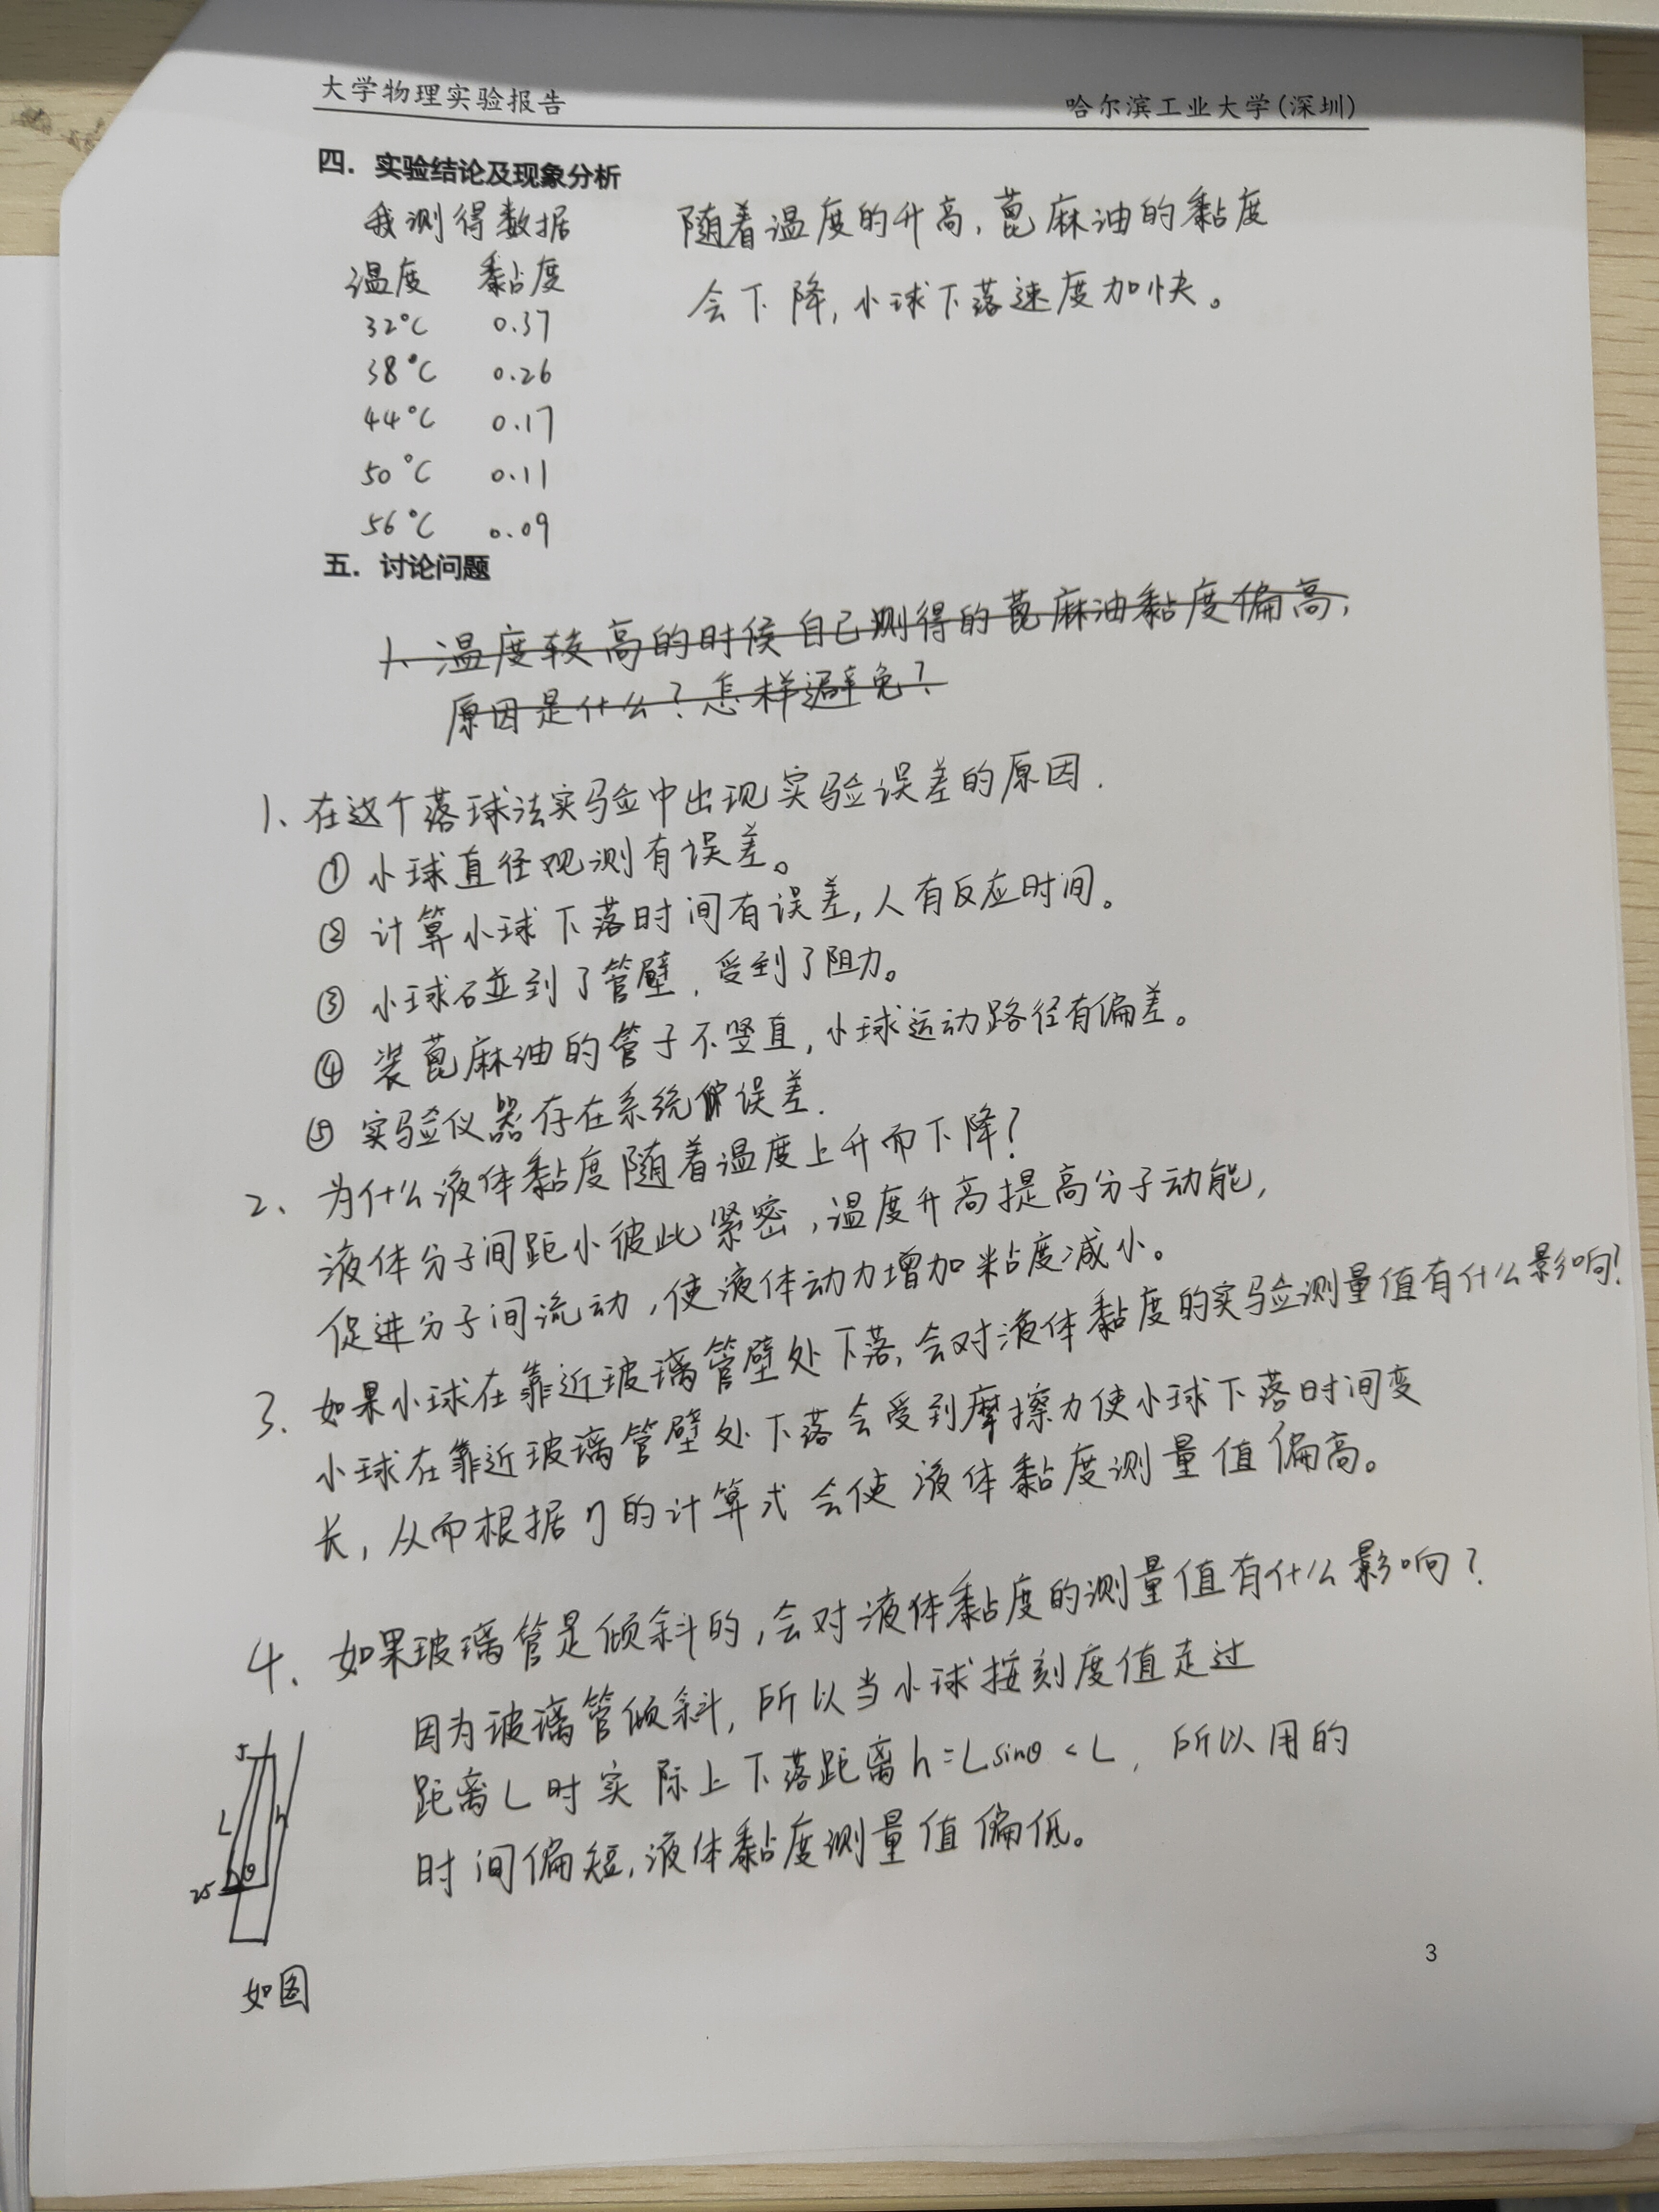 大学物理实验报告 哈尔滨工业大学(深圳)
四. 实验结论及现象分析
我测得数据 随着温度的升高,蓖麻油的黏度
温度 黏度 会下降,小球下落速度加快。
32°C 0.37
38°C 0.26
44°C 0.17
50°C 0.11
56°C 0.09
五. 讨论问题
1、温度较高的时候自己测得的蓖麻油黏度偏高,
原因是什么?怎样避免?
1、在这个落球法实验中出现实验误差的原因.
① 小球直径观测有误差。
② 计算小球下落时间有误差,人有反应时间。
③ 小球碰到了管壁,受到了阻力。
④ 装蓖麻油的管子不竖直,小球运动路径有偏差。
⑤ 实验仪器存在系统误差.
2、为什么液体黏度随着温度上升而下降?
液体分子间距小彼此紧密,温度升高提高分子动能,
促进分子间流动,使液体动力增加粘度减小。
3、如果小球在靠近玻璃管壁处下落,会对液体黏度的实验测量值有什么影响?
小球在靠近玻璃管壁处下落会受到摩擦力使小球下落时间变
长,从而根据η的计算式会使液体黏度测量值偏高。
4、如果玻璃管是倾斜的,会对液体黏度的测量值有什么影响?
因为玻璃管倾斜,所以当小球按刻度值走过
距离L时实际上下落距离h=Lsinθ<L,所以用的
时间偏短,液体黏度测量值偏低。
5
L h
θ
25
如图
3